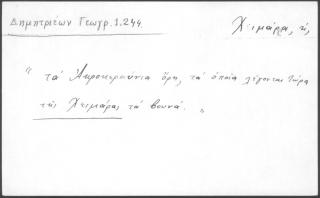 Δημητριέων Γεωγρ.1.244.
Χειμάρρα, ἡ,
“ τά Ἀκροκεραύνια ὄρη, τά ὁποῖα λέγονται τώρα
τῆς Χειμάρας τά βουνά. „